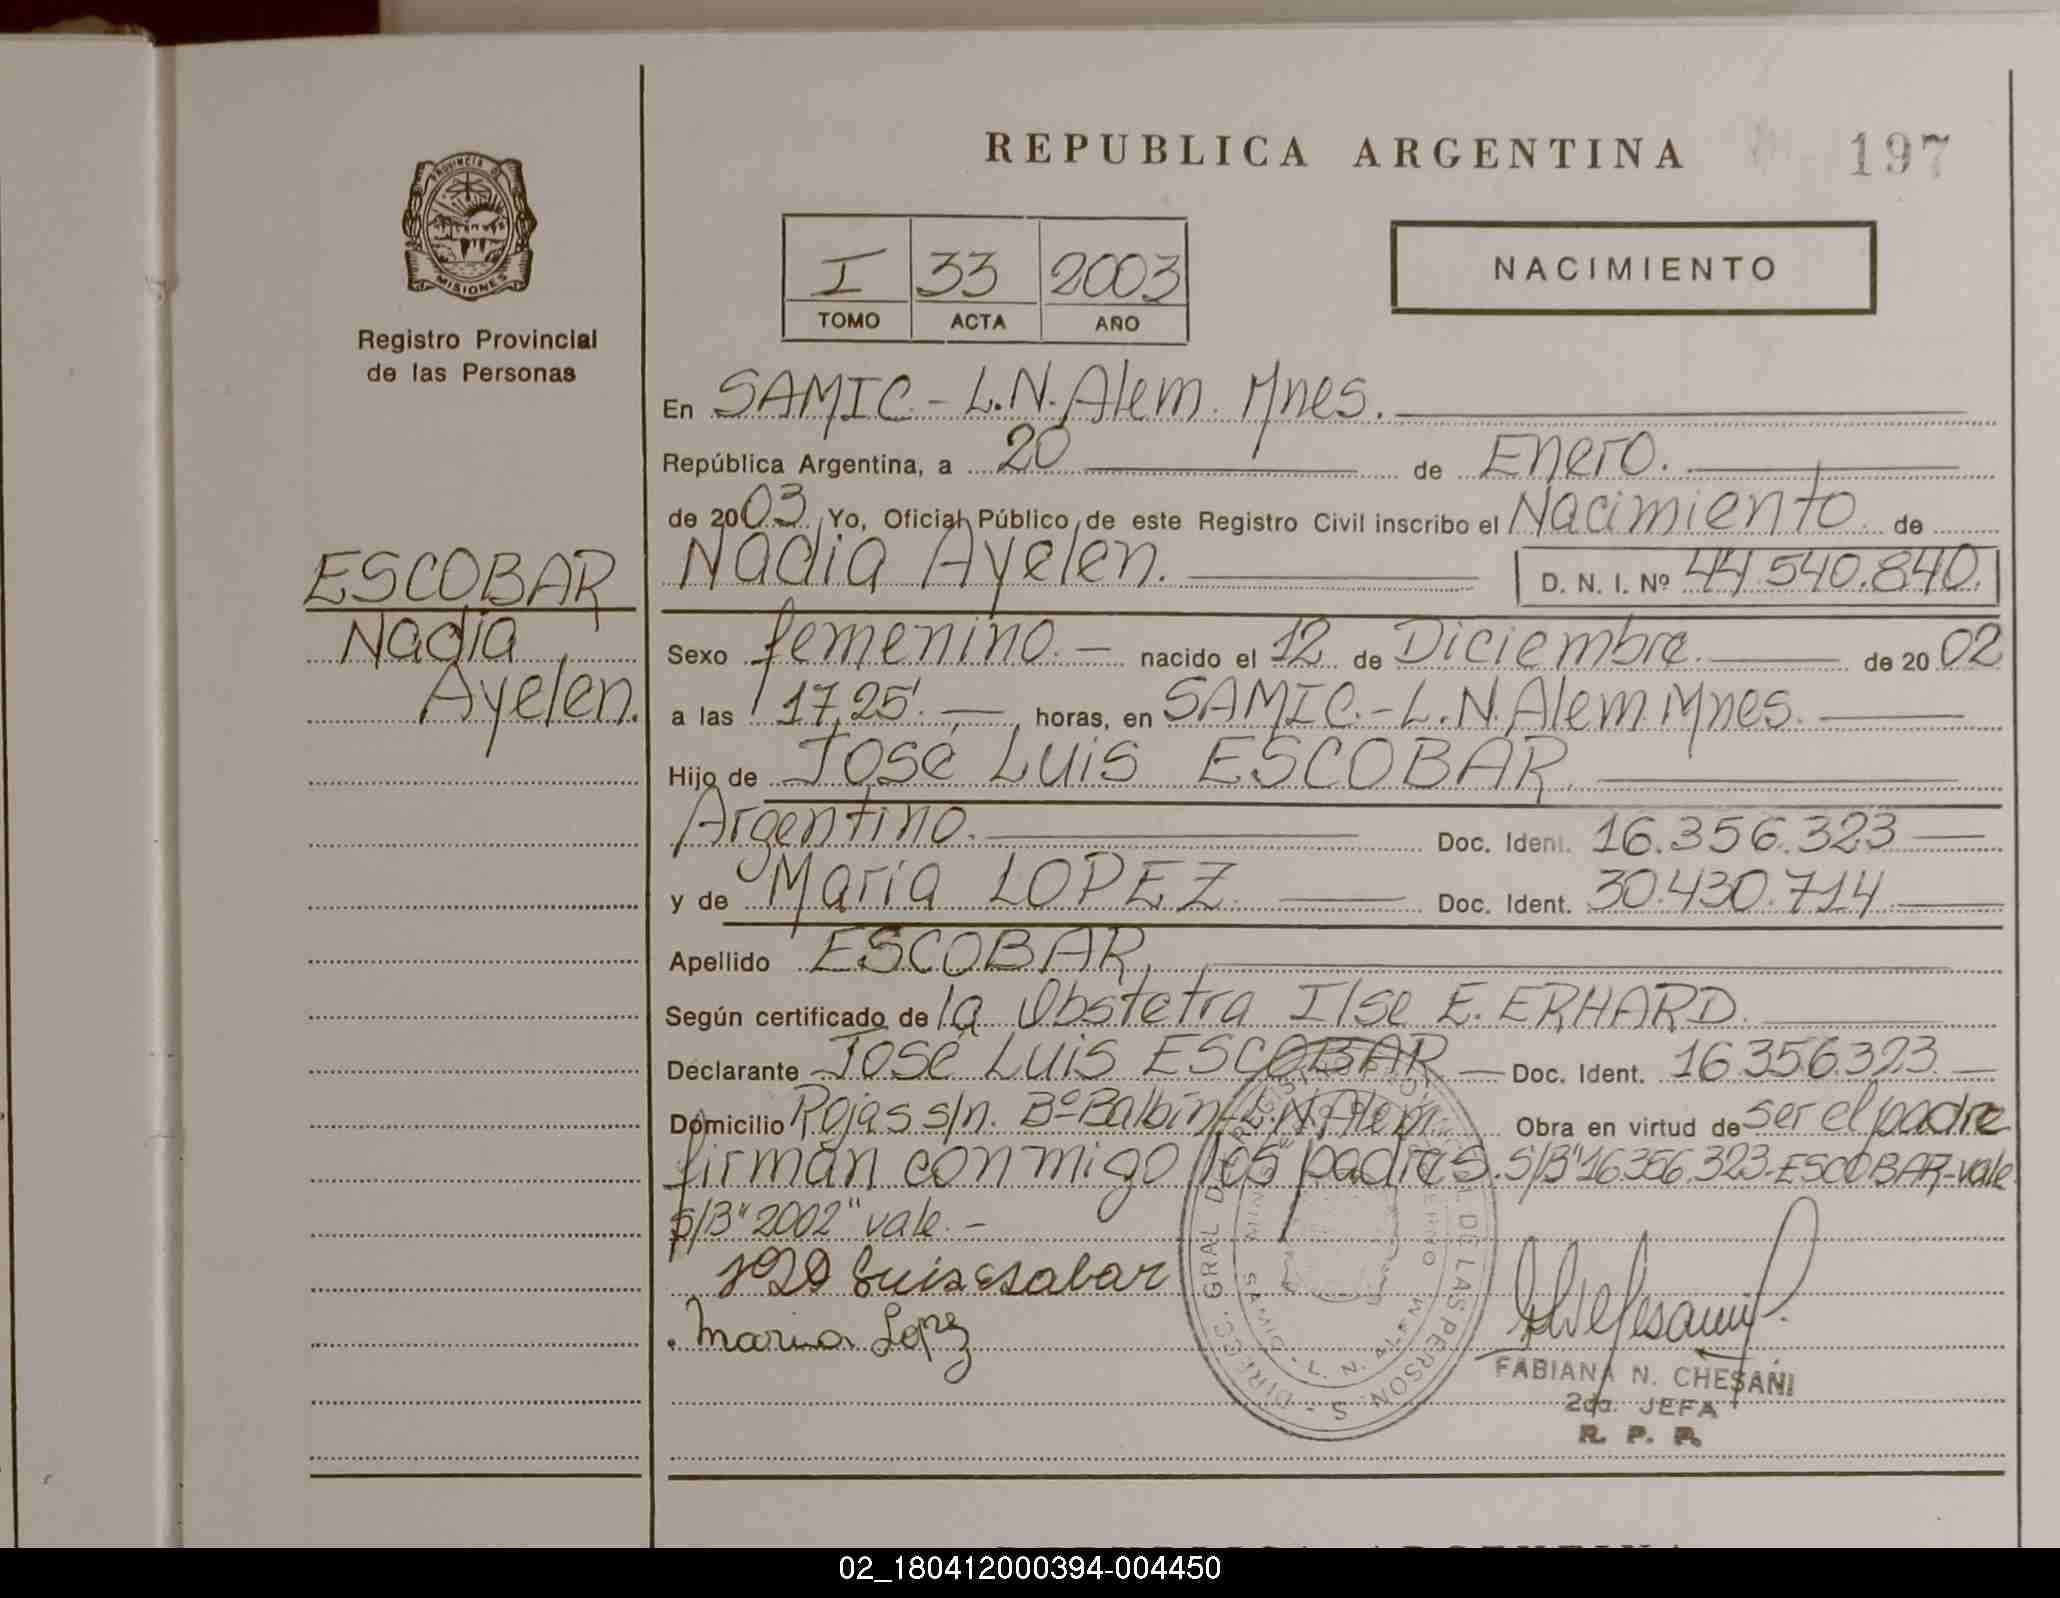 REPUBLICA ARGENTINA
197
PROVINCIA DE
MISIONES
Registro Provincial
de las Personas
I 33 2003
TOMO ACTA AÑO
NACIMIENTO
En SAMIC - L.N. Alem. Mnes.
República Argentina, a 20 de Enero.
de 2003 Yo, Oficial Público, de este Registro Civil inscribo el Nacimiento de
Nadia Ayelen. D. N. I. Nº 44.540.840.
ESCOBAR
Nadia
Ayelen.
Sexo femenino. - nacido el 12 de Diciembre. de 20 02
a las 17,25'. horas, en SAMIC.- L.N. Alem Mnes.
Hijo de José Luis ESCOBAR.
Argentino. Doc. Ident. 16.356.323
y de María LOPEZ. Doc. Ident. 30.430.714
Apellido ESCOBAR.
Según certificado de la Obstetra Ilse E. ERHARD.
Declarante José Luis ESCOBAR - Doc. Ident. 16.356.323
Domicilio Rojas s/n. Bº Balbín - L.N. Alem Obra en virtud de ser el padre
firman conmigo los padres. S/B "16.356.323-ESCOBAR-vale
S/B "2002" vale. -
Luis Escobar
Maria Lopez
DIRECC. GRAL DE REGISTRO PROVINCIAL DE LAS PERSONAS
L. N. ALEM
FABIANA N. CHESANI
2da. JEFA
R. P. P.
02_180412000394-004450